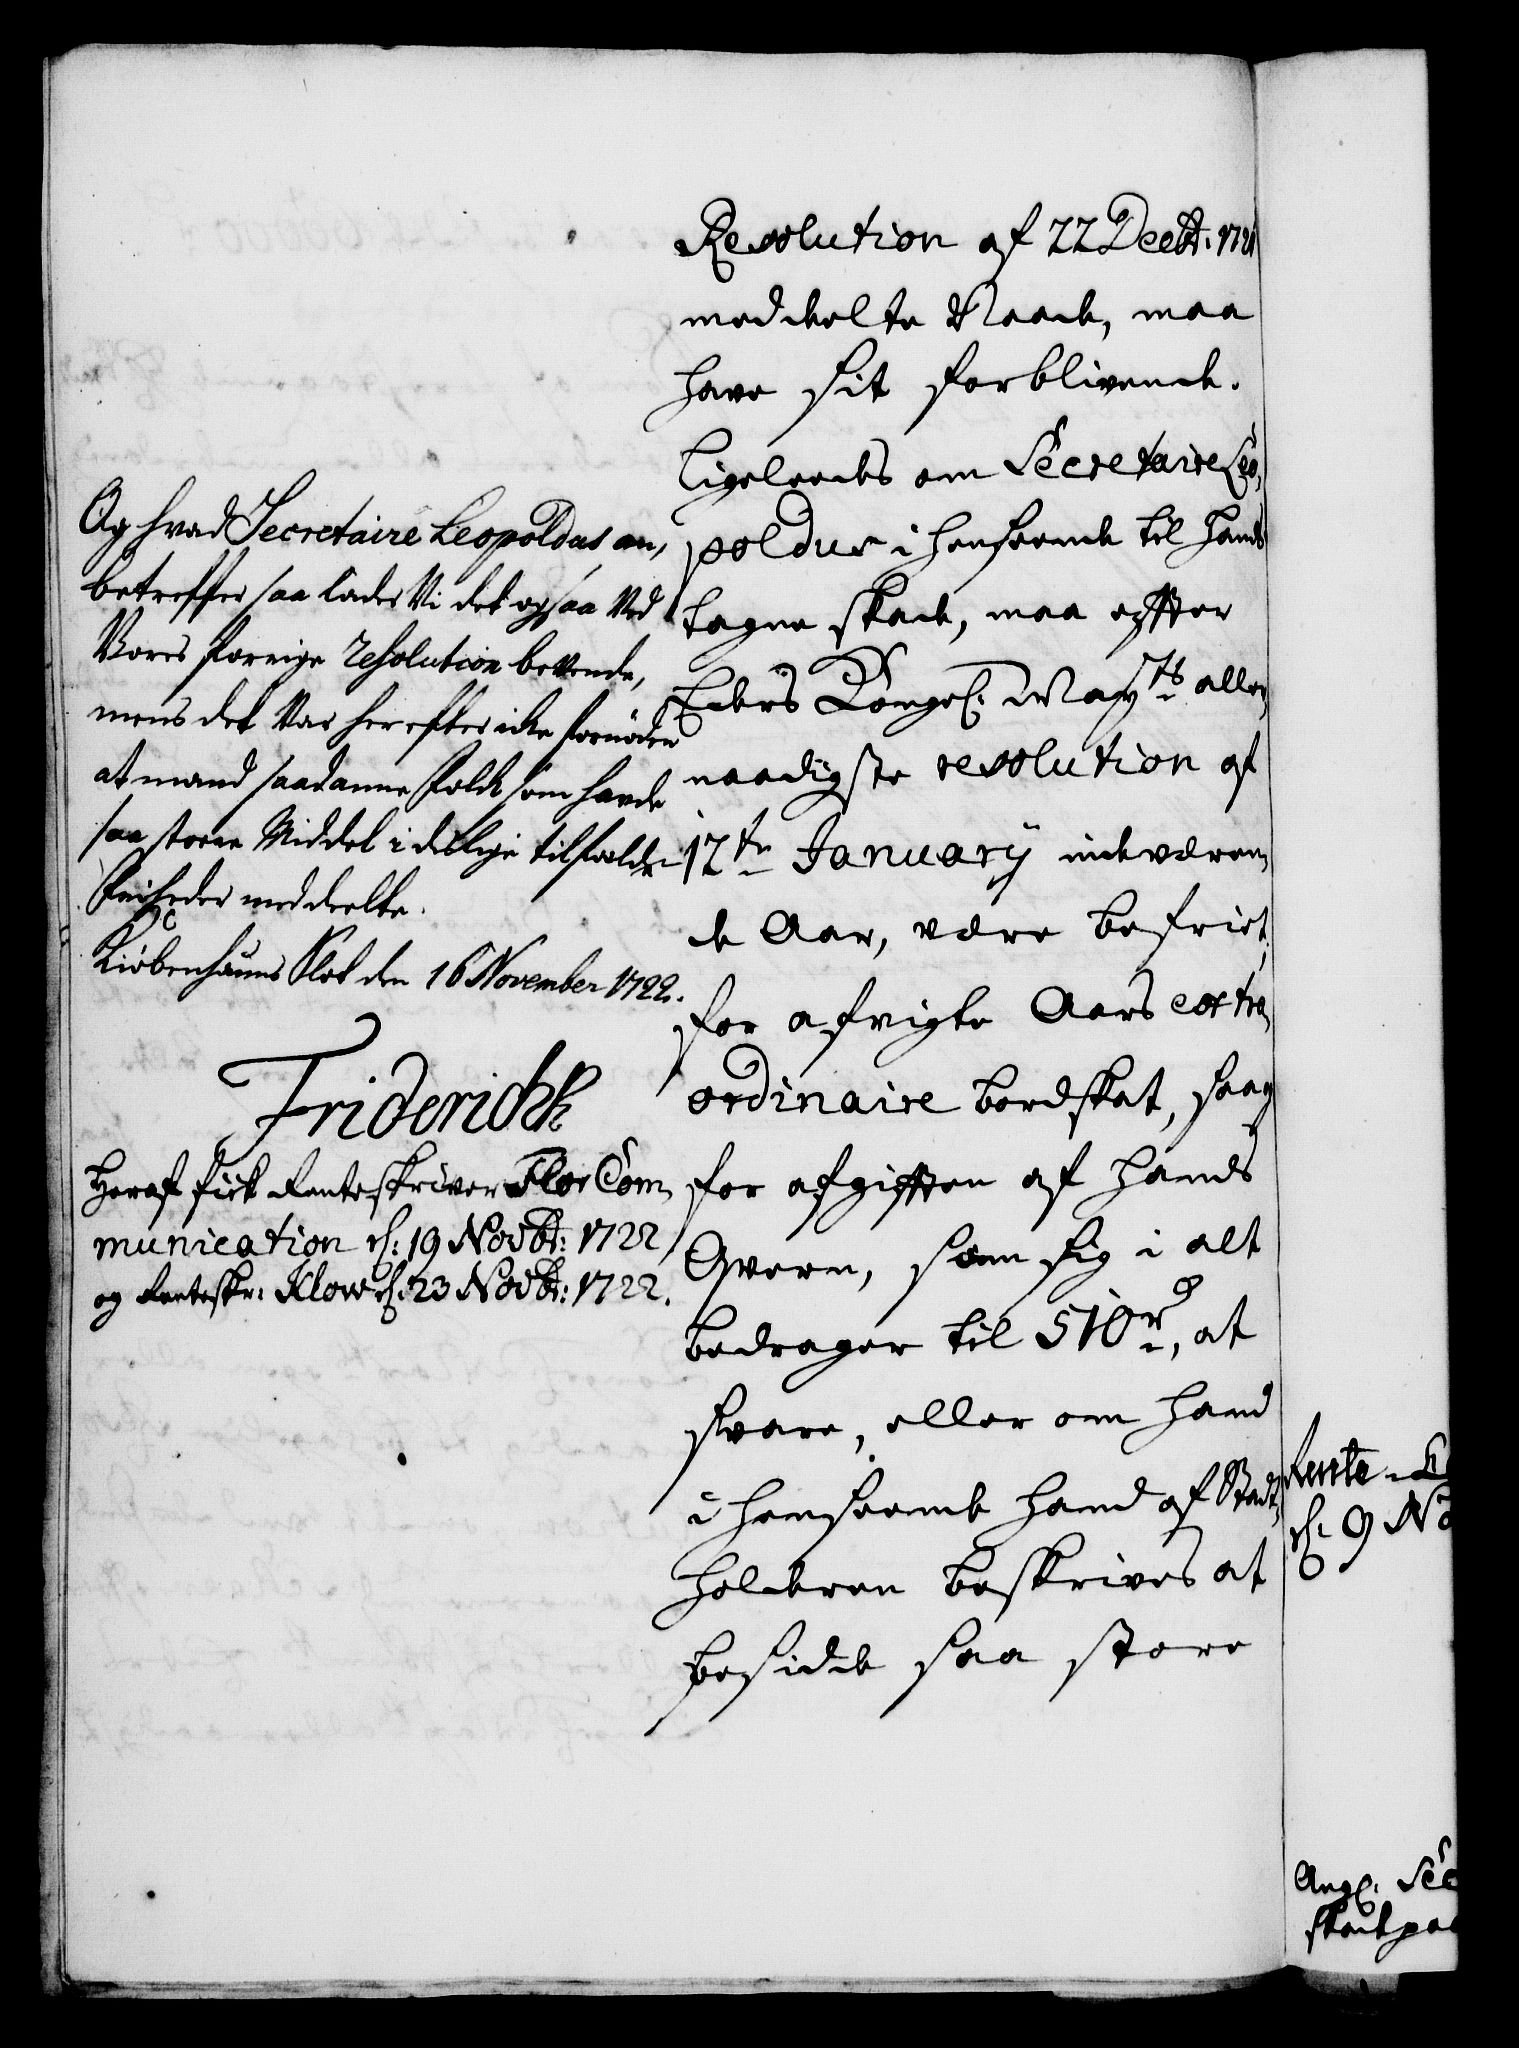 Og hvad Secretaire Leopoldus an,
betreffer saa lader Vi det ogsaa Ved
Vores forrige resolution bevende,
mens det Var herefter icke fornöden
at mand saadanne folck som hafde
saa store Middel i deslige tilfælde
friheder meddeelte.
Kiöbenhaũns Slot den 16 November 1722.
Friderichk
Heraf fick Renteskriver Flor Com,
munication d: 19 Novbr: 1722
og Renteskr: Klow d: 23 Novbr: 1722.
Resolution af 22 Decbr: 1721
meddeelte Naade, maa
have sit forblivende.
Ligeleedes om Secretaire Leo,
poldus i henseende til hands
tagne skade, maa efter
Eders Kongel: Mayts aller,
naadigste resolution af
12te January indeværen,
de Aar, være befriet,
for afvigte Aars extra,
ordinaire bordskat, saag
for afgiften af hands
Qvern, som sig i alt
bedrager til 510 rd, at
svare, eller om hand
i henseende hand af Stadt,
holderen beskrives at
besidde saa store
Rente
d: 9 No
Angl: Sec